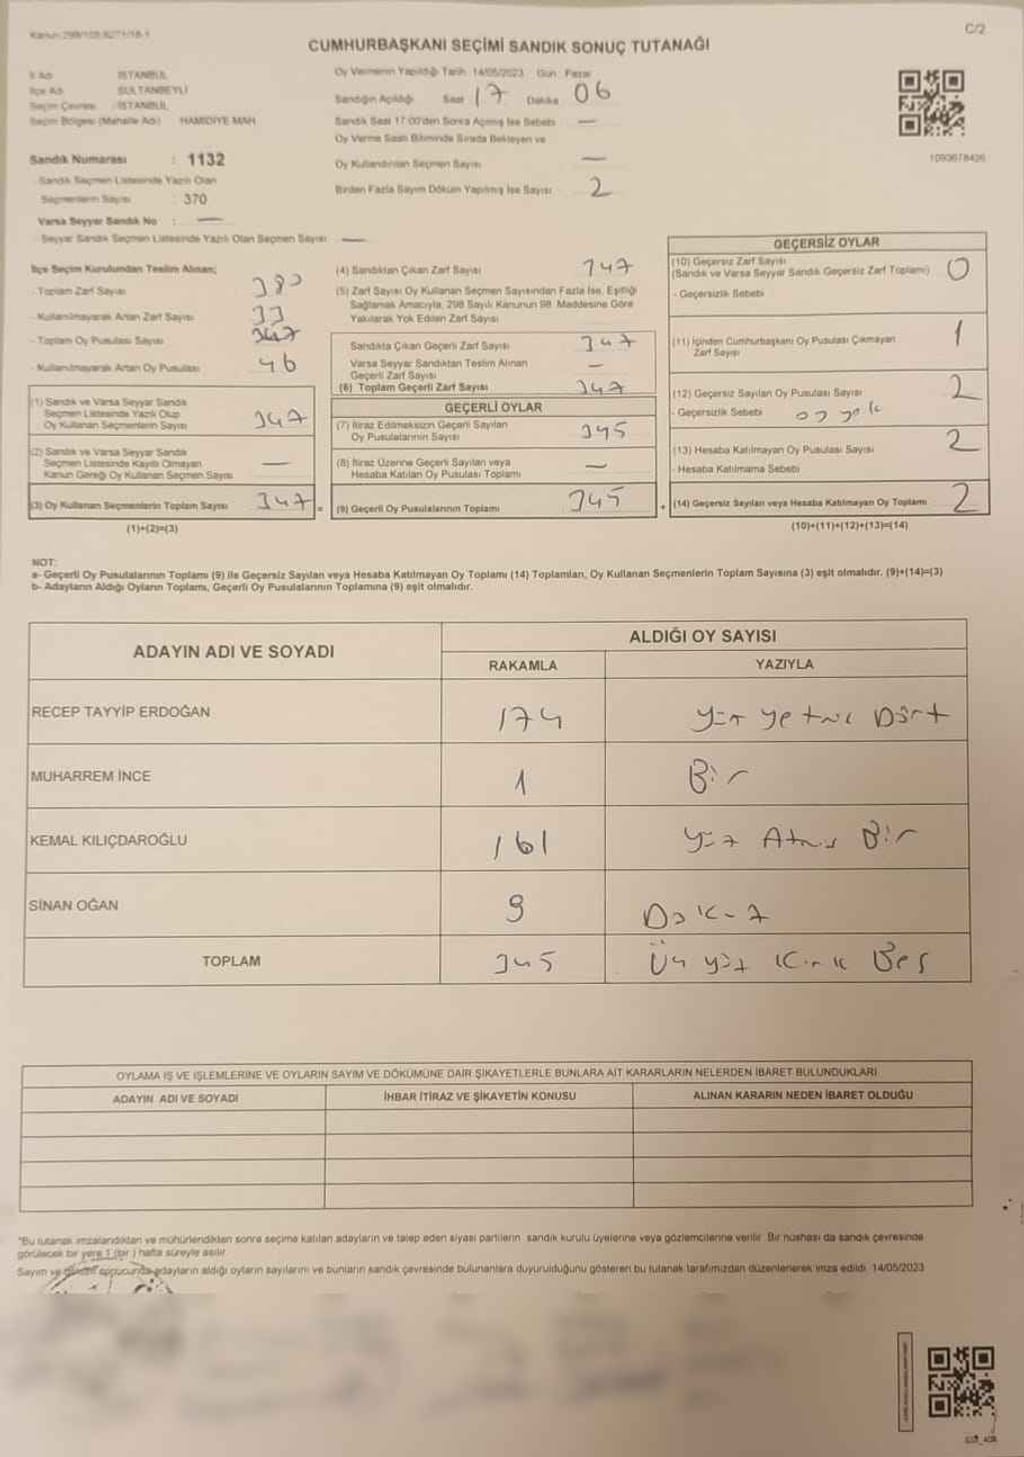 Kanun:298/105,6271/18-1
C/2
CUMHURBAŞKANI SEÇİMİ SANDIK SONUÇ TUTANAĞI
İl Adı : İSTANBUL
İlçe Adı : SULTANBEYLİ
Seçim Çevresi : İSTANBUL
Seçim Bölgesi (Mahalle Adı) HAMİDİYE MAH.
Sandık Numarası : 1132
Sandık Seçmen Listesinde Yazılı Olan
Seçmenlerin Sayısı : 370
Varsa Seyyar Sandık No : —
Seyyar Sandık Seçmen Listesinde Yazılı Olan Seçmen Sayısı —
Oy Vermenin Yapıldığı Tarih 14/05/2023 Gün : Pazar
Sandığın Açıldığı Saat 17 Dakika 06
Sandık Saat 17:00'den Sonra Açılmış İse Sebebi —
Oy Verme Saati Bitiminde Sırada Bekleyen ve
Oy Kullandırılan Seçmen Sayısı —
Birden Fazla Sayım Döküm Yapılmış İse Sayısı 2
1093678426
İlçe Seçim Kurulundan Teslim Alınan;
- Toplam Zarf Sayısı 380
- Kullanılmayarak Artan Zarf Sayısı 33
- Toplam Oy Pusulası Sayısı
- Kullanılmayarak Artan Oy Pusulası 46
(1) Sandık ve Varsa Seyyar Sandık
Seçmen Listesinde Yazılı Olup
Oy Kullanan Seçmenlerin Sayısı 347
(2) Sandık ve Varsa Seyyar Sandık
Seçmen Listesinde Kayıtlı Olmayan
Kanun Gereği Oy Kullanan Seçmen Sayısı —
(3) Oy Kullanan Seçmenlerin Toplam Sayısı 347 =
(1)+(2)=(3)
(4) Sandıktan Çıkan Zarf Sayısı 347
(5) Zarf Sayısı Oy Kullanan Seçmen Sayısından Fazla İse, Eşitliği
Sağlamak Amacıyla, 298 Sayılı Kanunun 98. Maddesine Göre
Yakılarak Yok Edilen Zarf Sayısı —
Sandıkta Çıkan Geçerli Zarf Sayısı 347
Varsa Seyyar Sandıktan Teslim Alınan
Geçerli Zarf Sayısı —
(6) Toplam Geçerli Zarf Sayısı 347
GEÇERLİ OYLAR
(7) İtiraz Edilmeksizin Geçerli Sayılan
Oy Pusulalarının Sayısı 345
(8) İtiraz Üzerine Geçerli Sayılan veya
Hesaba Katılan Oy Pusulası Toplamı —
(9) Geçerli Oy Pusulalarının Toplamı 345 +
GEÇERSİZ OYLAR
(10) Geçersiz Zarf Sayısı 0
(Sandık ve Varsa Seyyar Sandık Geçersiz Zarf Toplamı)
- Geçersizlik Sebebi
(11) İçinden Cumhurbaşkanı Oy Pusulası Çıkmayan 1
Zarf Sayısı
(12) Geçersiz Sayılan Oy Pusulası Sayısı 2
- Geçersizlik Sebebi
(13) Hesaba Katılmayan Oy Pusulası Sayısı 2
- Hesaba Katılmama Sebebi
(14) Geçersiz Sayılan veya Hesaba Katılmayan Oy Toplamı 2
(10)+(11)+(12)+(13)=(14)
NOT:
a- Geçerli Oy Pusulalarının Toplamı (9) ile Geçersiz Sayılan veya Hesaba Katılmayan Oy Toplamı (14) Toplamları, Oy Kullanan Seçmenlerin Toplam Sayısına (3) eşit olmalıdır. (9)+(14)=(3)
b- Adayların Aldığı Oyların Toplamı, Geçerli Oy Pusulalarının Toplamına (9) eşit olmalıdır.
ADAYIN ADI VE SOYADI ALDIĞI OY SAYISI
RAKAMLA YAZIYLA
RECEP TAYYİP ERDOĞAN 174 Yüz yetmiş Dört
MUHARREM İNCE 1 Bir
KEMAL KILIÇDAROĞLU 161 Yüz Atmış Bir
SİNAN OĞAN 9 Dokuz
TOPLAM 345 Üç yüz Kırk Beş
OYLAMA İŞ VE İŞLEMLERİNE VE OYLARIN SAYIM VE DÖKÜMÜNE DAİR ŞİKAYETLERLE BUNLARA AİT KARARLARIN NELERDEN İBARET BULUNDUKLARI
ADAYIN ADI VE SOYADI İHBAR İTİRAZ VE ŞİKAYETİN KONUSU ALINAN KARARIN NEDEN İBARET OLDUĞU
"Bu tutanak imzalandıktan ve mühürlendikten sonra seçime katılan adayların ve talep eden siyasi partilerin sandık kurulu üyelerine veya gözlemcilerine verilir. Bir nüshası da sandık çevresinde
görülecek bir yere 1 (bir) hafta süreyle asılır.
Sayım ve döküm sonucunda adayların aldığı oyların sayılarını ve bunların sandık çevresinde bulunanlara duyurulduğunu gösteren bu tutanak tarafımızdan düzenlenerek imza edildi. 14/05/2023